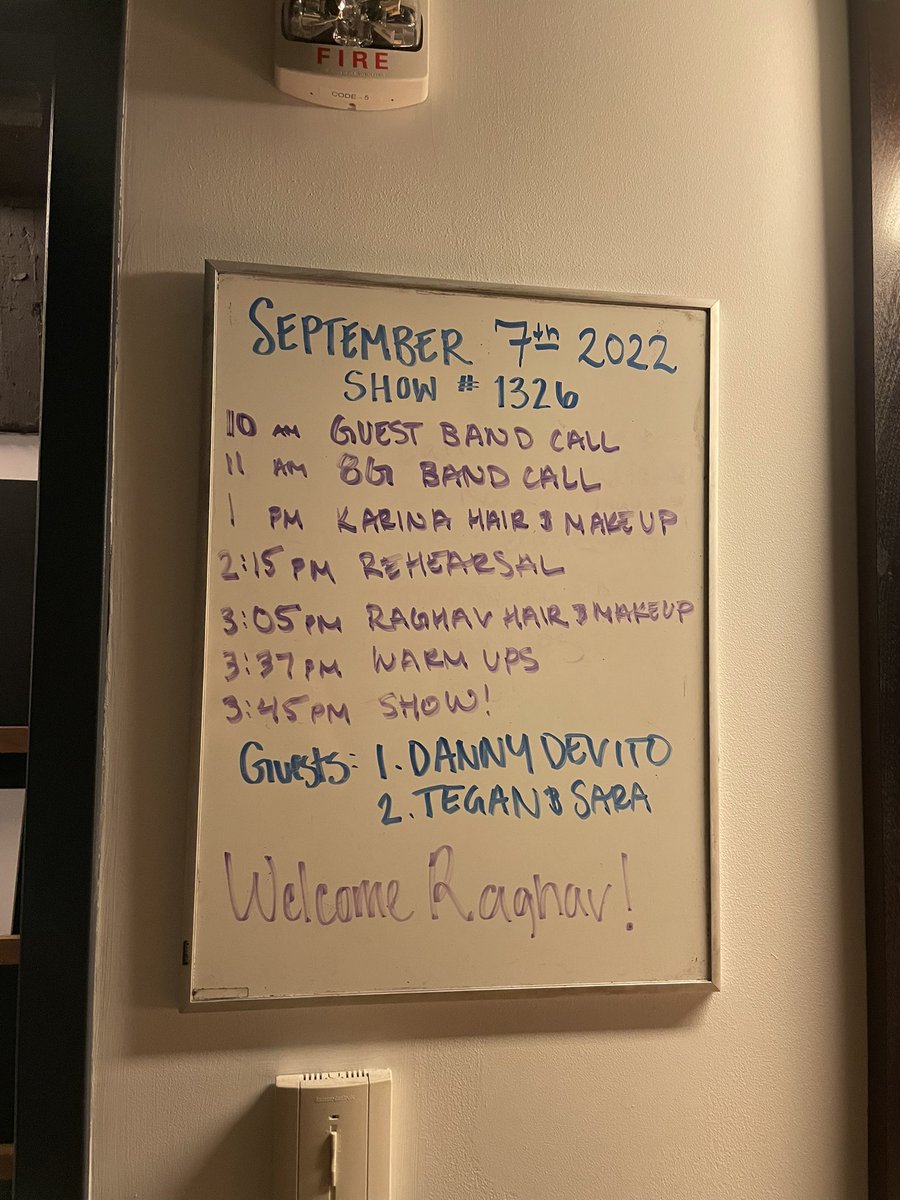 FIRE
CODE-5
SEPTEMBER 7th 2022
SHOW # 1326
10 AM GUEST BAND CALL
11 AM 8G BAND CALL
1 PM KARINA HAIR & MAKEUP
2:15 PM REHEARSAL
3:05 PM RAGHAV HAIR & MAKEUP
3:37 PM WARM UPS
3:45 PM SHOW!
Guests: 1. DANNY DEVITO
2. TEGAN & SARA
Welcome Raghav!